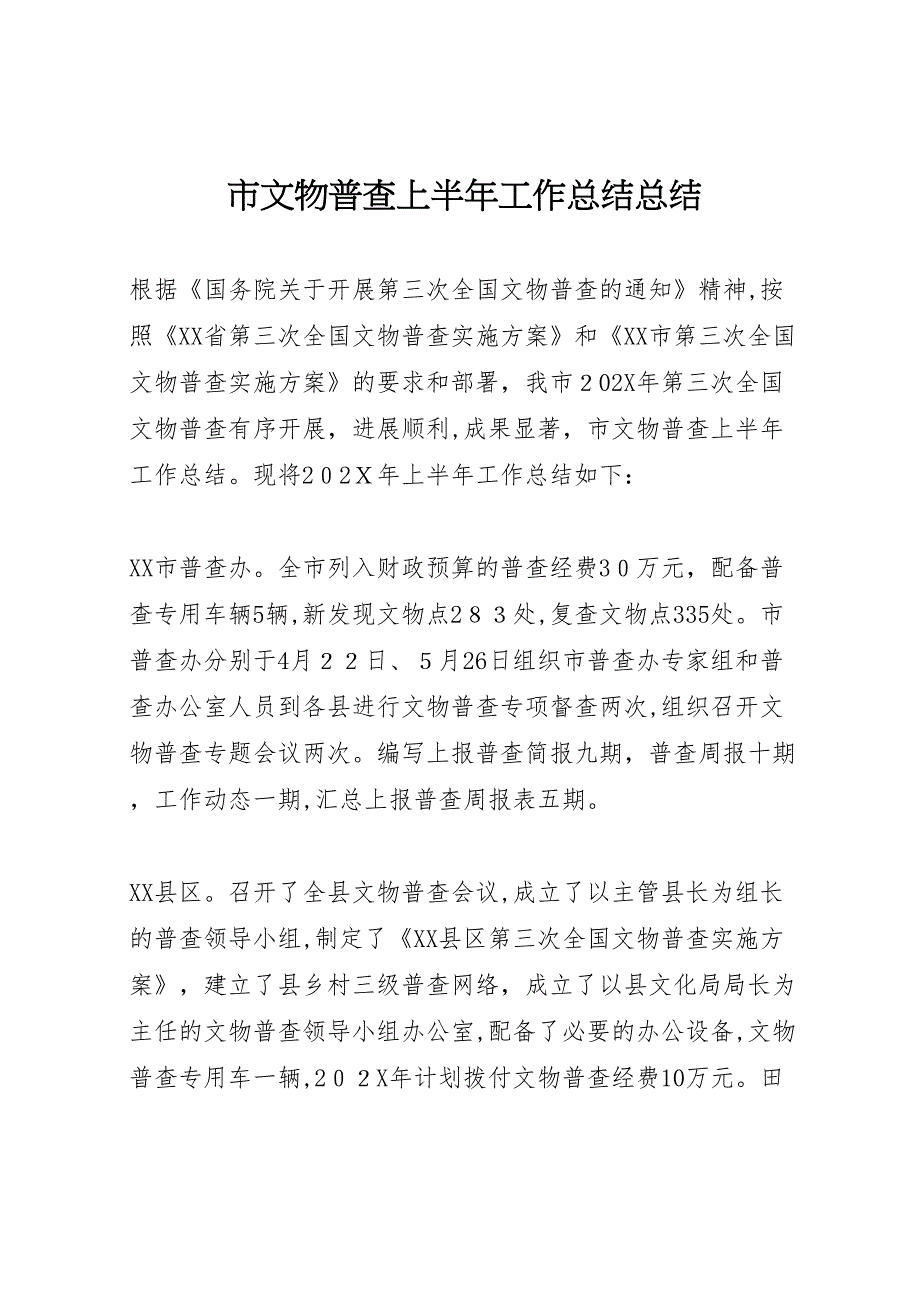 市文物普查上半年工作总结总结
根据《国务院关于开展第三次全国文物普查的通知》精神,按
照《XX省第三次全国文物普查实施方案》和《XX市第三次全国
文物普查实施方案》的要求和部署，我市２02X年第三次全国
文物普查有序开展，进展顺利,成果显著，市文物普查上半年
工作总结。现将2０2Ｘ年上半年工作总结如下：
XX市普查办。全市列入财政预算的普查经费3０万元，配备普
查专用车辆5辆,新发现文物点2８３处,复查文物点335处。市
普查办分别于4月２２日、５月26日组织市普查办专家组和普
查办公室人员到各县进行文物普查专项督查两次,组织召开文
物普查专题会议两次。编写上报普查简报九期，普查周报十期
，工作动态一期,汇总上报普查周报表五期。
XX县区。召开了全县文物普查会议,成立了以主管县长为组长
的普查领导小组,制定了《XX县区第三次全国文物普查实施方
案》，建立了县乡村三级普查网络，成立了以县文化局局长为
主任的文物普查领导小组办公室,配备了必要的办公设备,文物
普查专用车一辆,2０２X年计划拨付文物普查经费10万元。田